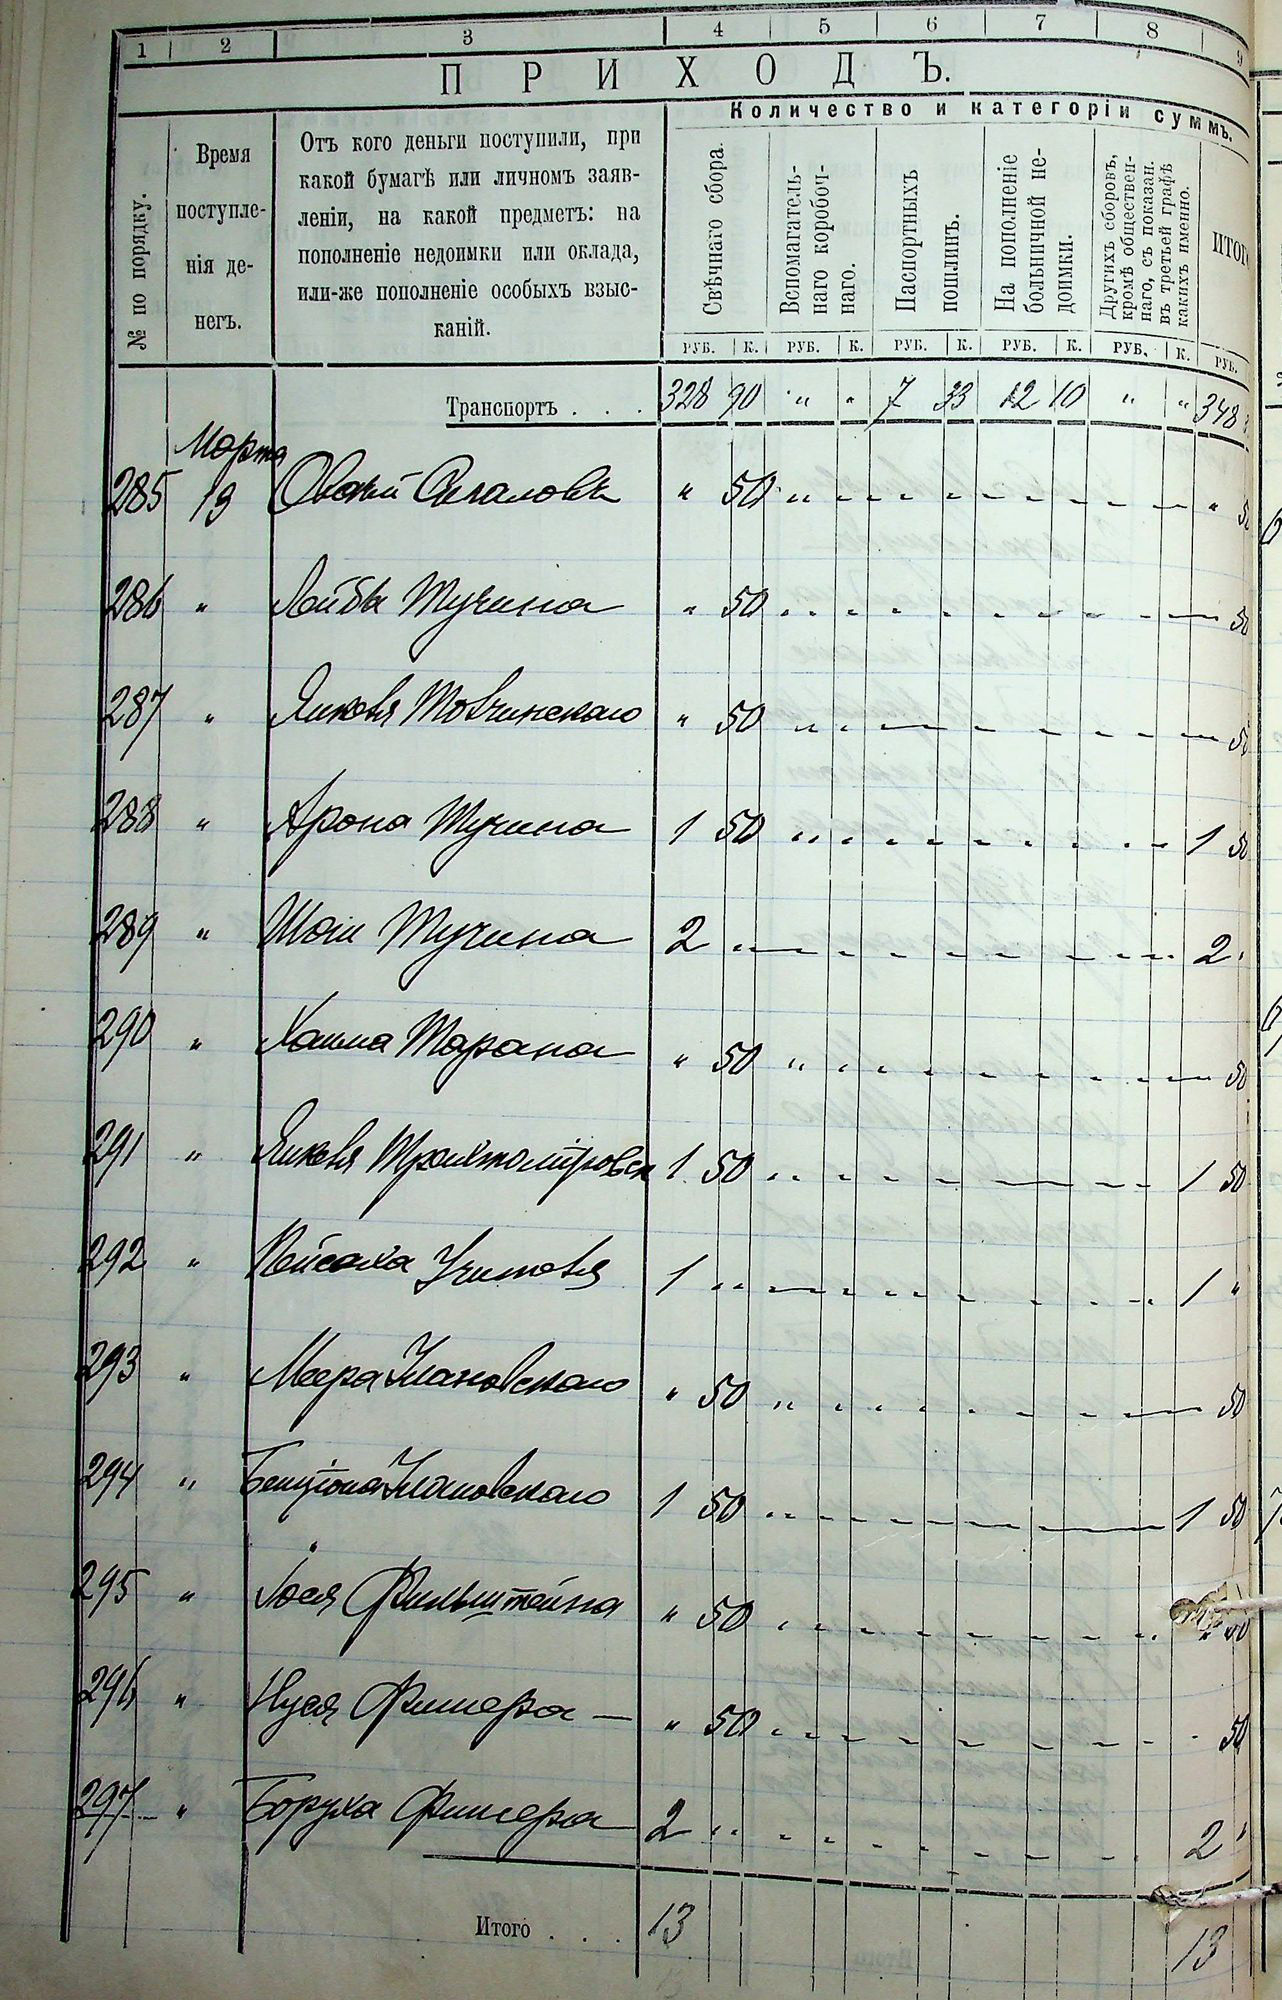 1 2 3 4 5 6 7 8 9
ПРИХОДЪ.
№ по порядку.
Время поступле-
нія де-
негъ.
Отъ кого деньги поступили, при
какой бумагѣ или личномъ заяв-
леніи, на какой предметъ: на
пополненіе недоимки или оклада,
или-же пополненіе особыхъ взыс-
каній.
Количество и категоріи суммъ.
Свѣчнаго сбора.
Вспомагатель-
наго коробоч-
наго.
Паспортныхъ
пошлинъ.
На пополненіе
больничной не-
доимки.
Другихъ сборовъ,
кромѣ обществен-
наго, съ показан.
въ третьей графѣ
какихъ именно.
ИТОГО
РУБ. К. РУБ. К. РУБ. К. РУБ. К. РУБ. К. РУБ.
Транспортъ . . . 328 90 " " 7 33 12 10 " " 348
Марта
285 19 " 50 " 50
286 " Лейбы Тучина " 50 50
287 " Якова Товчинскаго " 50 50
288 " Арона Тучина 1 50 1 50
289 " Шаи Тучина 2 " 2 "
290 " Хаима Тарана " 50 50
291 " Якова 1 50 1 50
292 " Пейсаха 1 " 1 "
293 " Меера Улановскаго " 50 50
294 " Бенціона Улановскаго 1 50 1 50
295 " Фильштейна " 50 " 50
296 " Нуся Фишера — " 50 50
297 " Боруха Фишера 2 " 2 "
Итого . . . 13 13